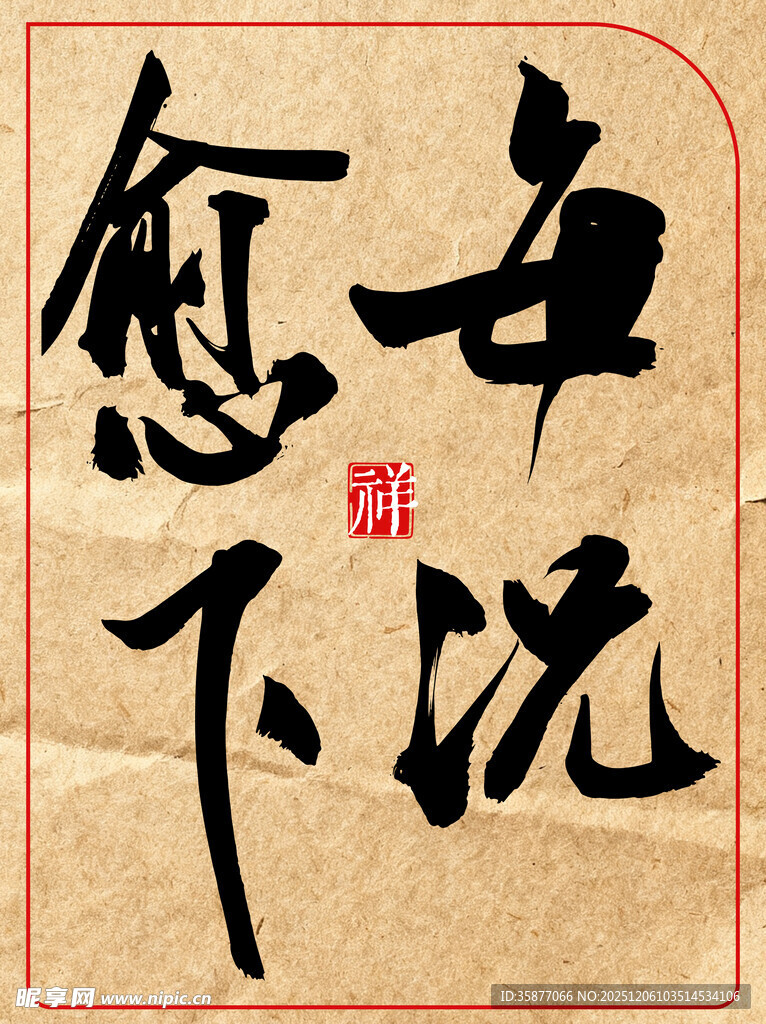 每况
愈下
祥
昵享网 www.nipic.cn
ID:35877066 NO:20251206103514534106